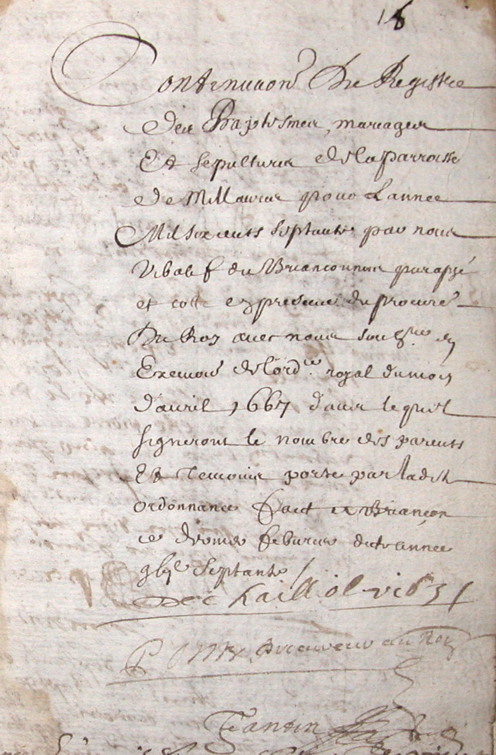 18
Continuation Du Registre
des Baptesmes, mariages
Et sepultures de la parroisse
de St Maurice pour L'annee
Mil six cents septante par nous
Vibalif du Brianconnois paraphé
et cotté en presence du procureur
Du Roy avec nous soubsne en
Execution de l'ordce royal du mois
d'avril 1667 dans lequel
signeront le nombre des parents
Et Temoins porté par ladite
ordonnance fait a Briancon
ce dernier febvrier de l'année
septante
Des vib
procureur du Roy